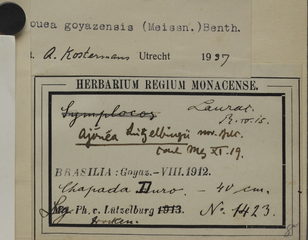 ouea goyazensis (Meissn.) Benth.
A. Kostermans Utrecht 1937
HERBARIUM REGIUM MONACENSE.
Symplocos Laurac.
Ajouea Lützelburgii nov. spec.
XI. 19.
BRASILIA: Goyaz.-VIII. 1912.
Chapada Duro. - 40 cm.
Leg. Ph. v. Lützelburg 1913. No. 1423.